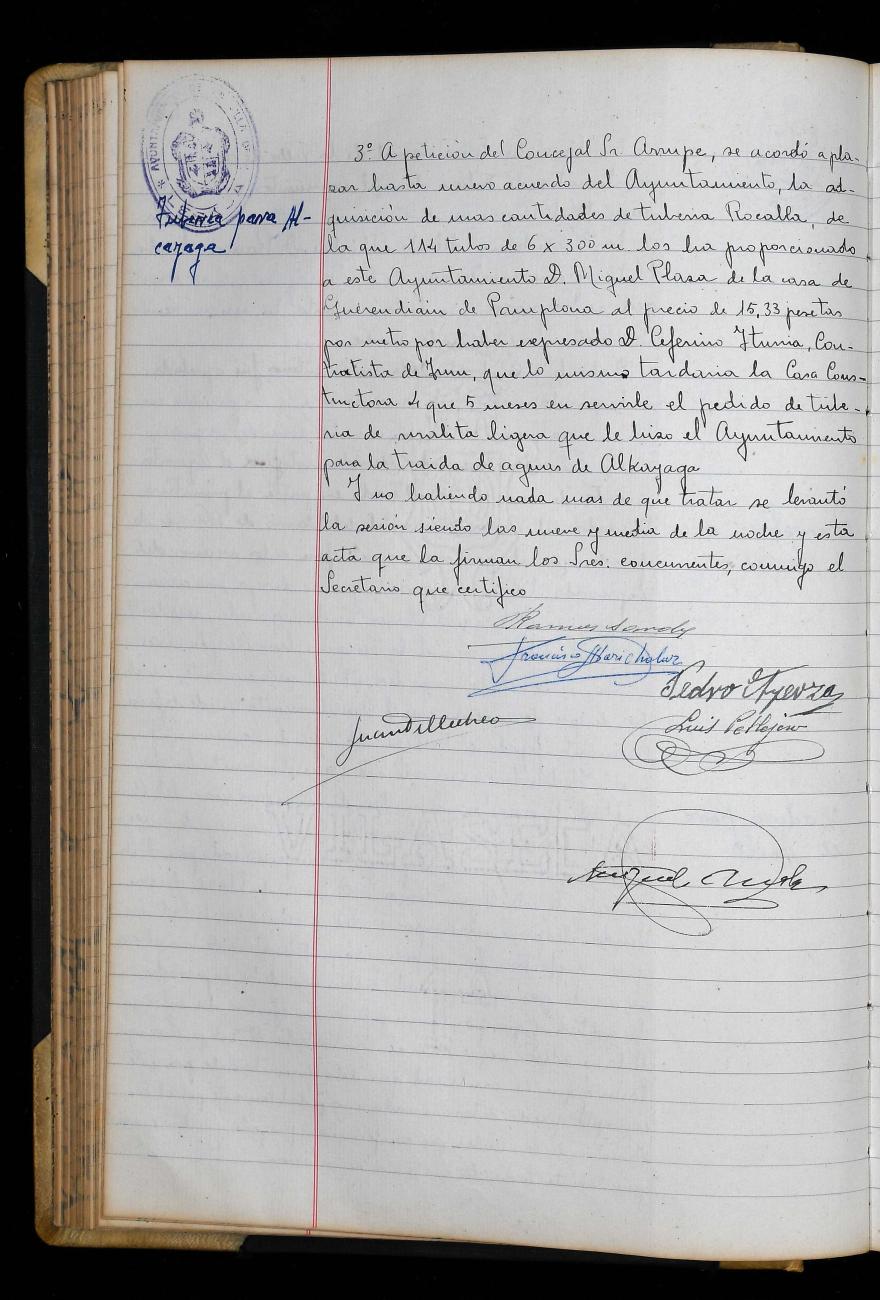 Tuberia para Al-
cayaga
3º. A petición del Concejal Sr Arrupe, se acordó apla-
zar hasta nuevo acuerdo del Ayuntamiento, la ad-
quisición de unas cantidades de tuberia Rocalla, de
la que 114 tubos de 6 x 300 m los ha proporcionado
a este Ayuntamiento D. Miguel Plaza de la casa de
Guerendiain de Pamplona al precio de 15,33 pesetas
por metro por haber expresado D. Ceferino Iturria, Con-
tratista de Irun, que lo mismo tardaria la Casa Cons-
tructora 4 que 5 meses en servirle el pedido de tube-
ria de uralita ligera que le hizo el Ayuntamiento
para la traida de aguas de Alkayaga
Y no habiendo nada mas de que tratar se levantó
la sesión siendo las nueve y media de la noche y esta
acta que la firman los Sres. concurrentes, conmigo el
Secretario que certifico
Francisco Marichalar
Pedro Oyerza
Luis Pellejero
Miguel